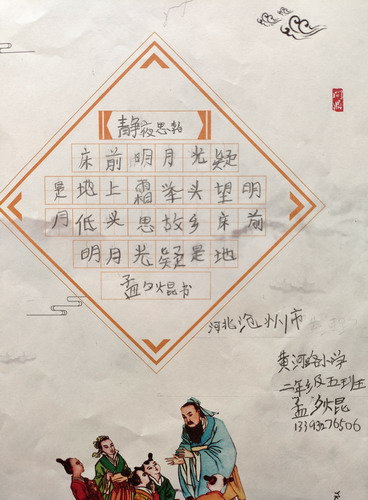 静夜思
床前明月光疑
是地上霜举头望明
月低头思故乡床前
明月光疑是地
孟夕焜书
河北沧州市
黄河路小学
二年级五班
孟夕焜
13393276506